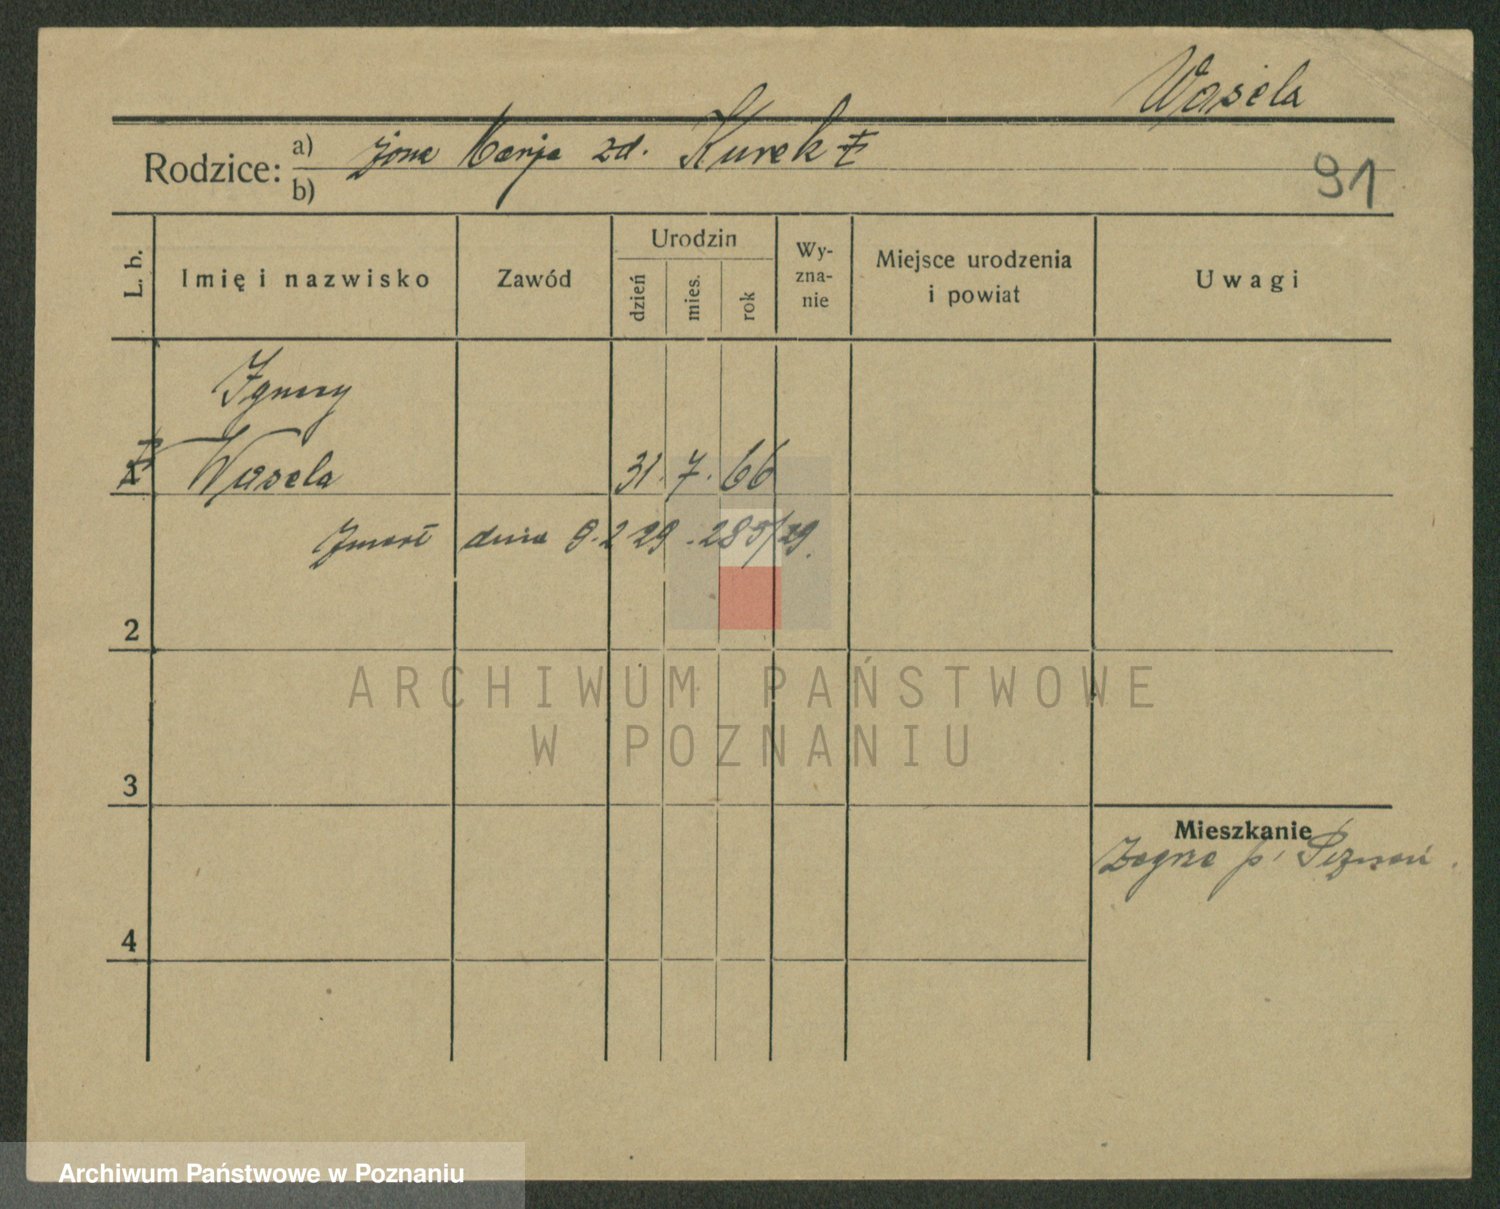 Wasela
Rodzice: a) żona Marja zd. Kurek
b)
91
L. b.
Imię i nazwisko
Zawód
Urodzin
dzień
mies.
rok
Wy-
zna-
nie
Miejsce urodzenia
i powiat
Uwagi
Ignacy
1 Wasela 31. 7. 66
Zmarł dnia 9.2 29 . 285/29.
2
3
4
Mieszkanie
p. Poznań.
ARCHIWUM PAŃSTWOWE
W POZNANIU
Archiwum Państwowe w Poznaniu